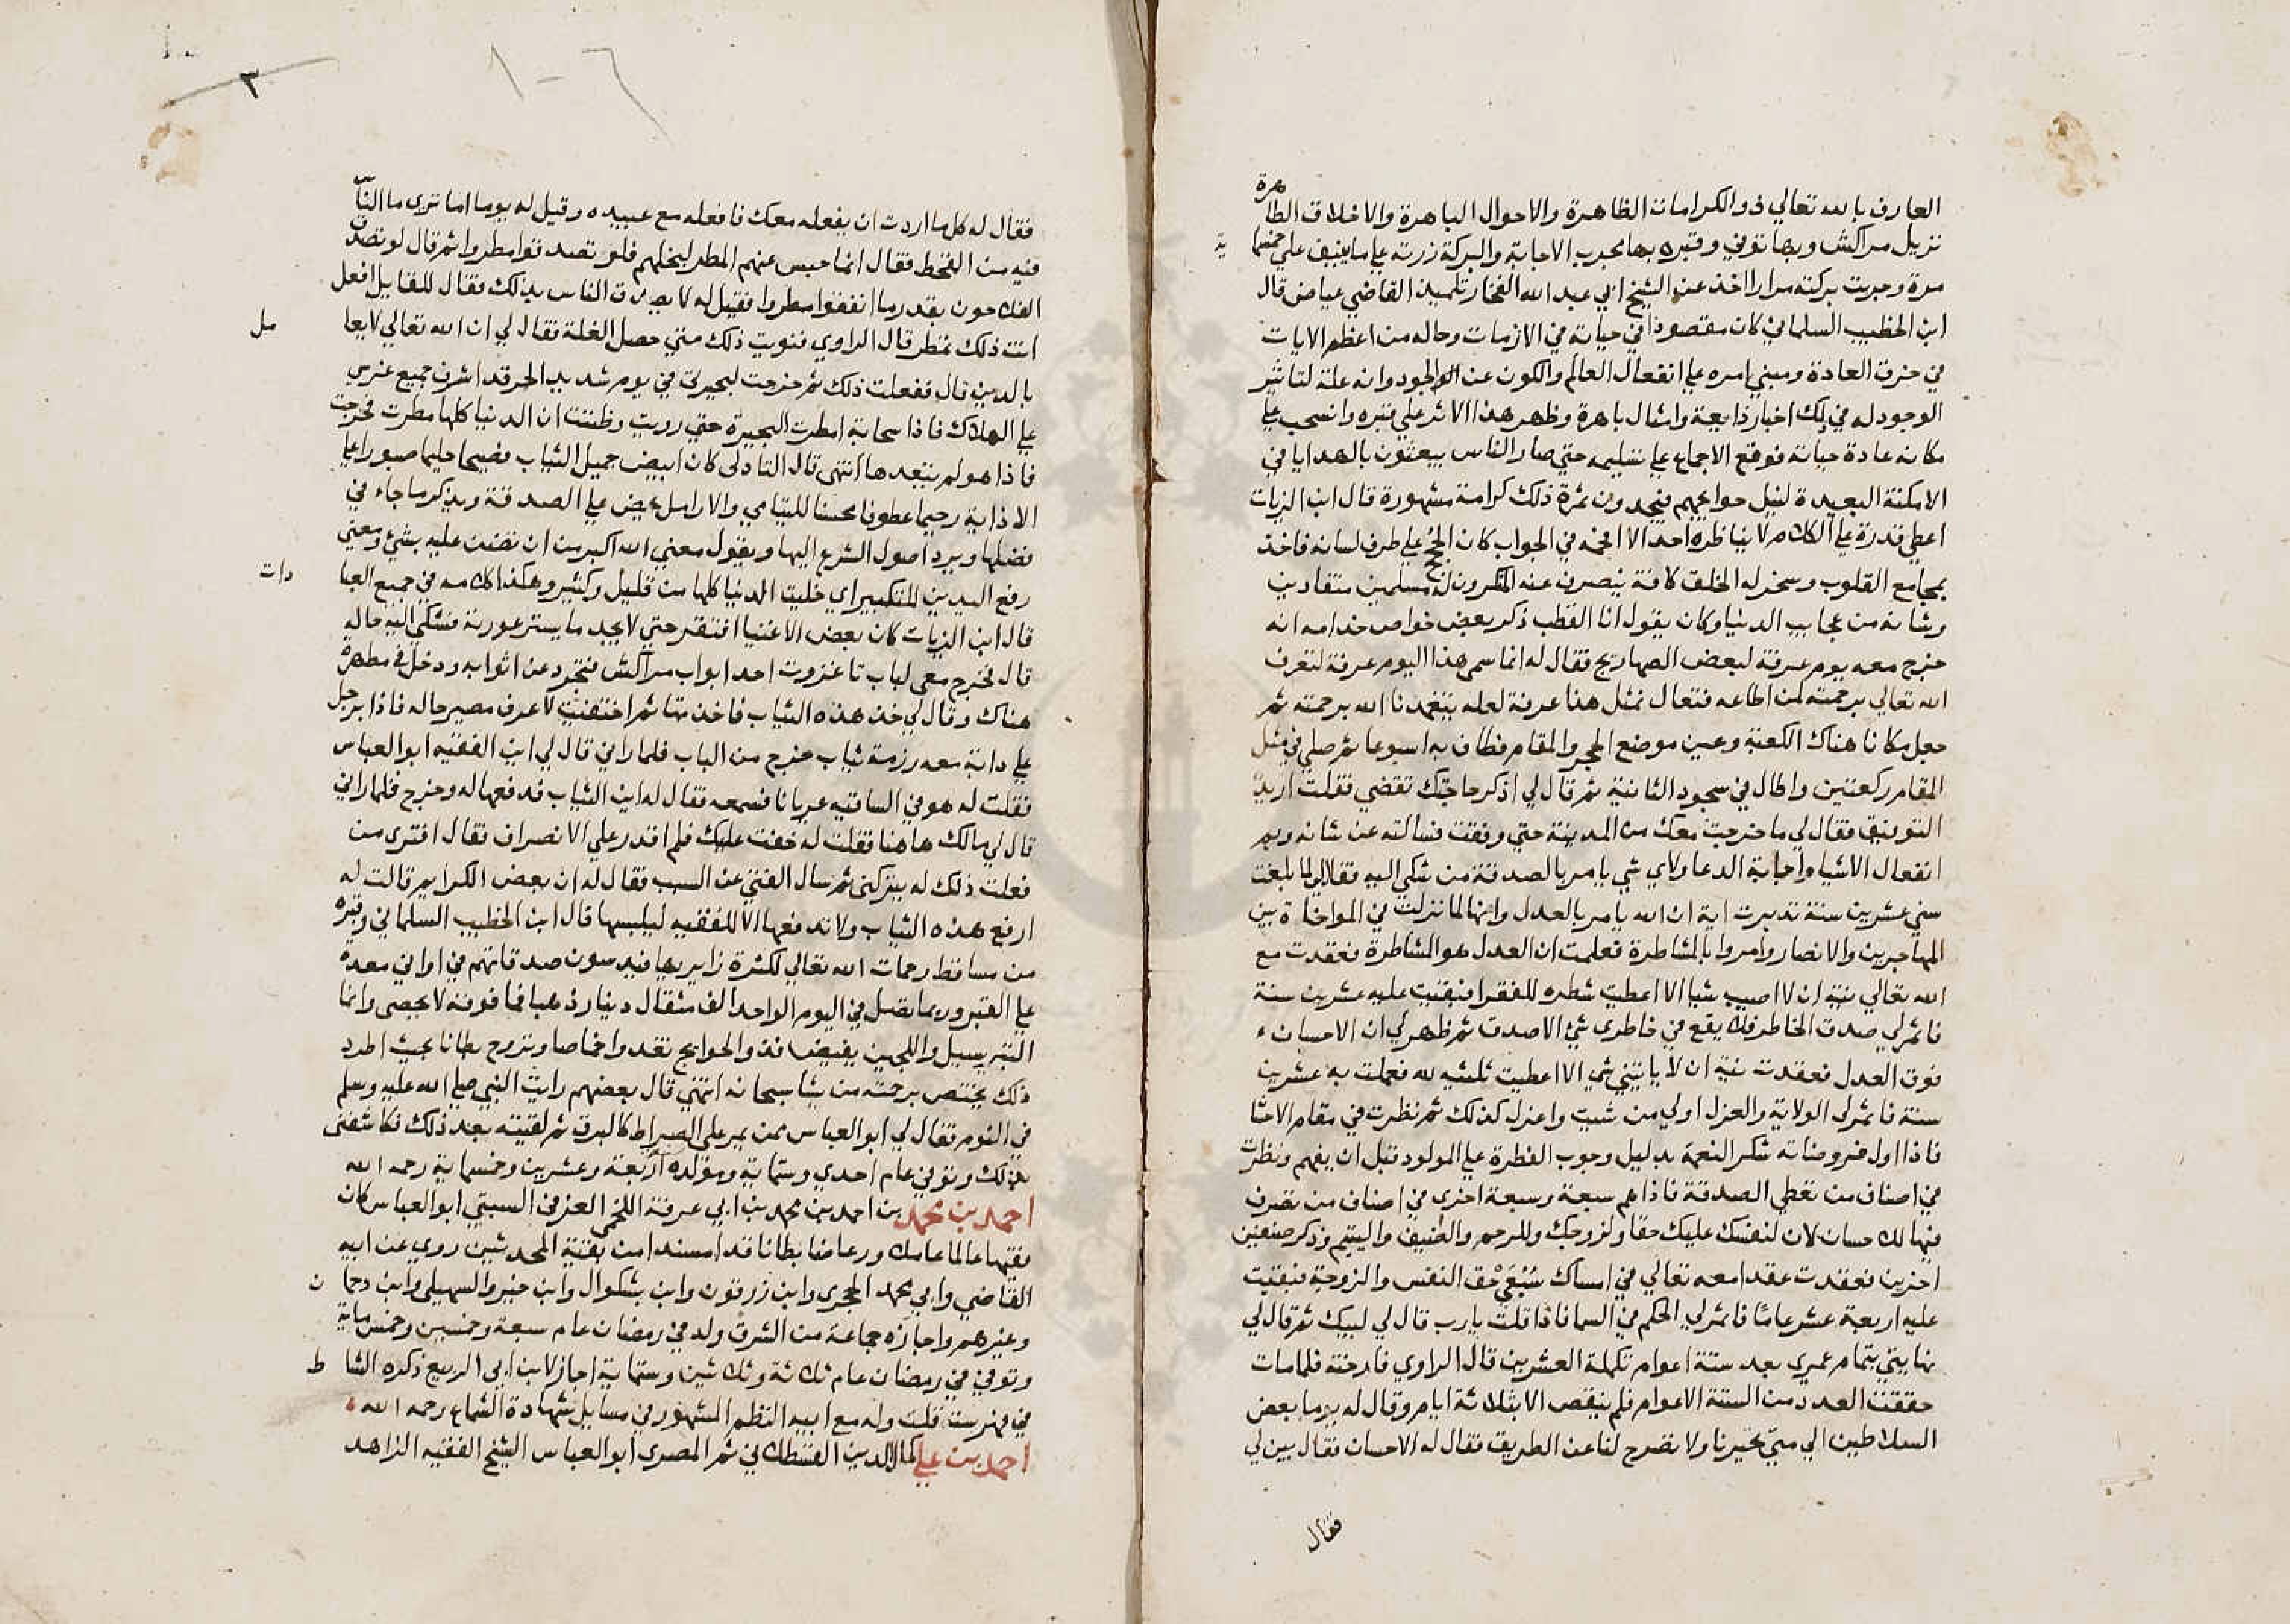 العارف بالله تعالي ذو الكرامات الظاهرة والاحوال الباهرة والاخلاق الطاهرة
نزيل مراكش وبها توفي وقبره بها مجرب الاجابة والبركة زرته علي ما ينيف علي خمسماية
مرة وجربت بركته مرارا اخذ عن الشيخ ابي عبد الله الفخار تلميذ القاضي عياض قال
ابن الخطيب السلماني كان مقصودا في حياته في الازمات وحاله من اعظم الايات
في خرق العادة ومبني امره علي انفعال العالم والكون عن الجود وانه علة لتاثير
الوجود له في ذلك اخبار ذايعة وامثال باهرة وظهر هذا الاثر علي قبره وانسحب علي
مكانه عادة حياته فوقع الاجماع علي تسليمه حتي صار الناس يبعثون بالهدايا في
الامكنة البعيدة لنيل حوايجهم فيجدون ثمرة ذلك كرامة مشهورة قال ابن الزيات
اعطي قدرة علي الكلام لا يناظره احد الا افحمه في الجواب كان الحجج علي طرف لسانه فاخذ
بمجامع القلوب وسخر له الخلق كافة ينصرف عنه المنكرون له مسلمين منقادين
وشانه من عجايب الدنيا وكان يقول انا القطب ذكر بعض خواص خدامه انه
خرج معه يوم عرفة لبعض الصهاريج فقال له انما سمي هذا اليوم عرفة لتعرف
الله تعالي برحمته لمن اطاعه فتعال نمثل هنا عرفة لعله يتغمدنا الله برحمته ثم
جعل مكانا هناك الكعبة وعين موضع الحجر والمقام فطاف به اسبوعا ثم صلي في مثل
المقام ركعتين واطال في سجود الثانية ثم قال لي اذكر حاجتك تقضي فقلت اريد
التوفيق فقال لي ما خرجت معك من المدينة حتي وفقت فسالته عن شانه وبم
انفعال الاشيا واجابة الدعا ولاي شي يامر بالصدقة من شكي اليه فقال لي لما بلغت
سني عشرين سنة تدبرت اية ان الله يامر بالعدل وانها لما نزلت في المواخاة بين
المهاجرين والانصار وامروا بالمشاطرة فعلمت ان العدل هو المشاطرة فعقدت مع
الله تعالي نية ان لا اصيب شيا الا اعطيت شطره للفقرا فبقيت عليه عشرين سنة
فاثمر لي صدق الخاطر فلا يقع في خاطري شي الا صدق ثم ظهر لي ان الاحسان
فوق العدل فعقدت نية ان لا ياتيني شي الا اعطيت ثلثيه لله فعملت به عشرين
سنة فاثمر لي الولاية والعزل اولي من شيت واعزل كذلك ثم نظرت في مقام الاحسا
فاذا اول فروضاته شكر النعمة بدليل وجوب الفطرة علي المولود قبل ان يفهم ونظرت
في اصناف من تعطي الصدقة فاذا هم سبعة وسبعة اخري في اصناف من تصرف
فيها لاحسان لان لنفسك عليك حقا ولزوجك وللرحم والضيف واليتيم وذكر صنفين
اخرين فعقدت عقدا معه تعالي في امساك سُبُعَيْ حق النفس والزوجة فبقيت
عليه اربعة عشر عاما فاثمر لي الحكم في السما فاذا قلت يا رب قال لي لبيك ثم قال لي
نهايتي بتمام عمري بعد ستة اعوام تكملة العشرين قال الراوي فارخته فلما مات
حققت العدد من الستة الاعوام فلم ينقص الا بثلاثة ايام وقال له يوما بعض
السلاطين الي متي تحيرنا ولا تصرح لنا عن الطريق فقال له الاحسان فقال بين لي
فقال
٣
١٠٦
فقال له كل ما اردت ان يفعله معك فافعله مع عبيده وقيل له يوما اما تري ما الناس
فيه من القحط فقال انما حبس عنهم المطر لبخلهم فلو تصدقوا امطروا ثم قال لو تصدق
الفلاحون بقدر ما انفقوا مطروا فقيل له لا يصدق الناس بذلك فقال للقايل افعل
انت ذلك تمطر قال الراوي فنويت ذلك متي حصل الغلة فقال لي ان الله تعالي لا يعامل
بالدين قال ففعلت ذلك ثم خرجت لبحيرتي في يوم شديد الحر قد اشرف جميع غرسي
علي الهلاك فاذا سحابة امطرت البحيرة حتي رويت وظننت ان الدنيا كلها مطرت فخرجت
فاذا هو لم يتعدها انتهي قال التادلي كان ابيض جميل الثياب فصيحا حليما صبورا علي
الاذاية رحيما عطوفا محسنا لليتامي والارامل يحض علي الصدقة ويذكر ما جاء في
فضلها ويرد اصول الشرع اليها ويقول معني الله اكبر من ان نضن عليه بشي ومعني
رفع اليدين للتكبير اي خليت الدنيا كلها من قليل وكثير وهكذا كلامه في جميع العبادات
قال ابن الزيات كان بعض الاغنيا افتقر حتي لا يجد ما يستر عورته فشكي اليه حاله
قال فخرج معي لباب تاغزوت احد ابواب مراكش فتجرد عن اثوابه ودخل في مطهرة
هناك وقال لي خذ هذه الثياب فاخذتها ثم اختفيت لاعرف مصير حاله فاذا برجل
علي دابة معه رزمة ثياب خرج من الباب فلما راني قال لي اين الفقيه ابو العباس
فقلت له هو في الساقيه عريانا فسمعه فقال له اين الثياب فدفعها له وخرج فلما راني
قال لي مالك هاهنا فقلت له خفت عليك فلم اقدر علي الانصراف فقال افتري من
فعلت ذلك له يتركني ثم سال الفتي عن السبب فقال له ان بعض الكرايم قالت له
ارفع هذه الثياب ولا تدفعها الا للفقيه ليلبسها قال ابن الخطيب السلماني وقبره
من مساقط رحمات الله تعالي لكثرة زايريها فيدسون صدقاتهم في اواني معدة
علي القبر وربما تصل في اليوم الواحد الف مثقال دينار ذهبا فما فوقه لا يحصي وانما
التبر يسيل واللجين يفيض والحوايج تغدوا خماصا وتروح بطانا بحيث اطرد
ذلك يختص برحمته من يشا سبحانه انتهي قال بعضهم رايت النبي صلي الله عليه وسلم
في النوم فقال لي ابو العباس ممن يمر علي الصراط كالبرق ثم لقيته بعد ذلك فكاشفني
بذلك وتوفي عام احدي وستماية ومولده اربعة وعشرين وخمسماية رحمه الله
احمد بن محمد بن احمد بن محمد بن ابي عرفة اللخمي العزفي السبتي ابو العباس كان
فقيها عالما عاملا ورعا ضابطا ناقدا مسندا من بقية المحدثين روي عن ابيه
القاضي وابي محمد الحجري وابن زرقون وابن بشكوال وابن خير والسهيلي وابن دحمان
وغيرهم واجازه جماعة من الشرق ولد في رمضان عام سبعة وخمسين وخمسماية
وتوفي في رمضان عام ثلاثة وثلاثين وستماية اجاز لابن ابي الربيع ذكره الشاط
في فهرسته قلت وله مع ابيه النظم المشهور في مسايل شهادة السماع رحمه الله
احمد بن علي كمال الدين القسطلاني ثم المصري ابو العباس الشيخ الفقيه الزاهد